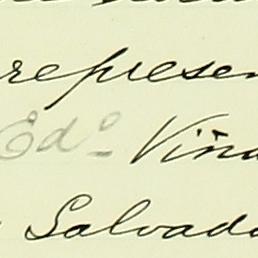 represen
Edº Viña
Salvado